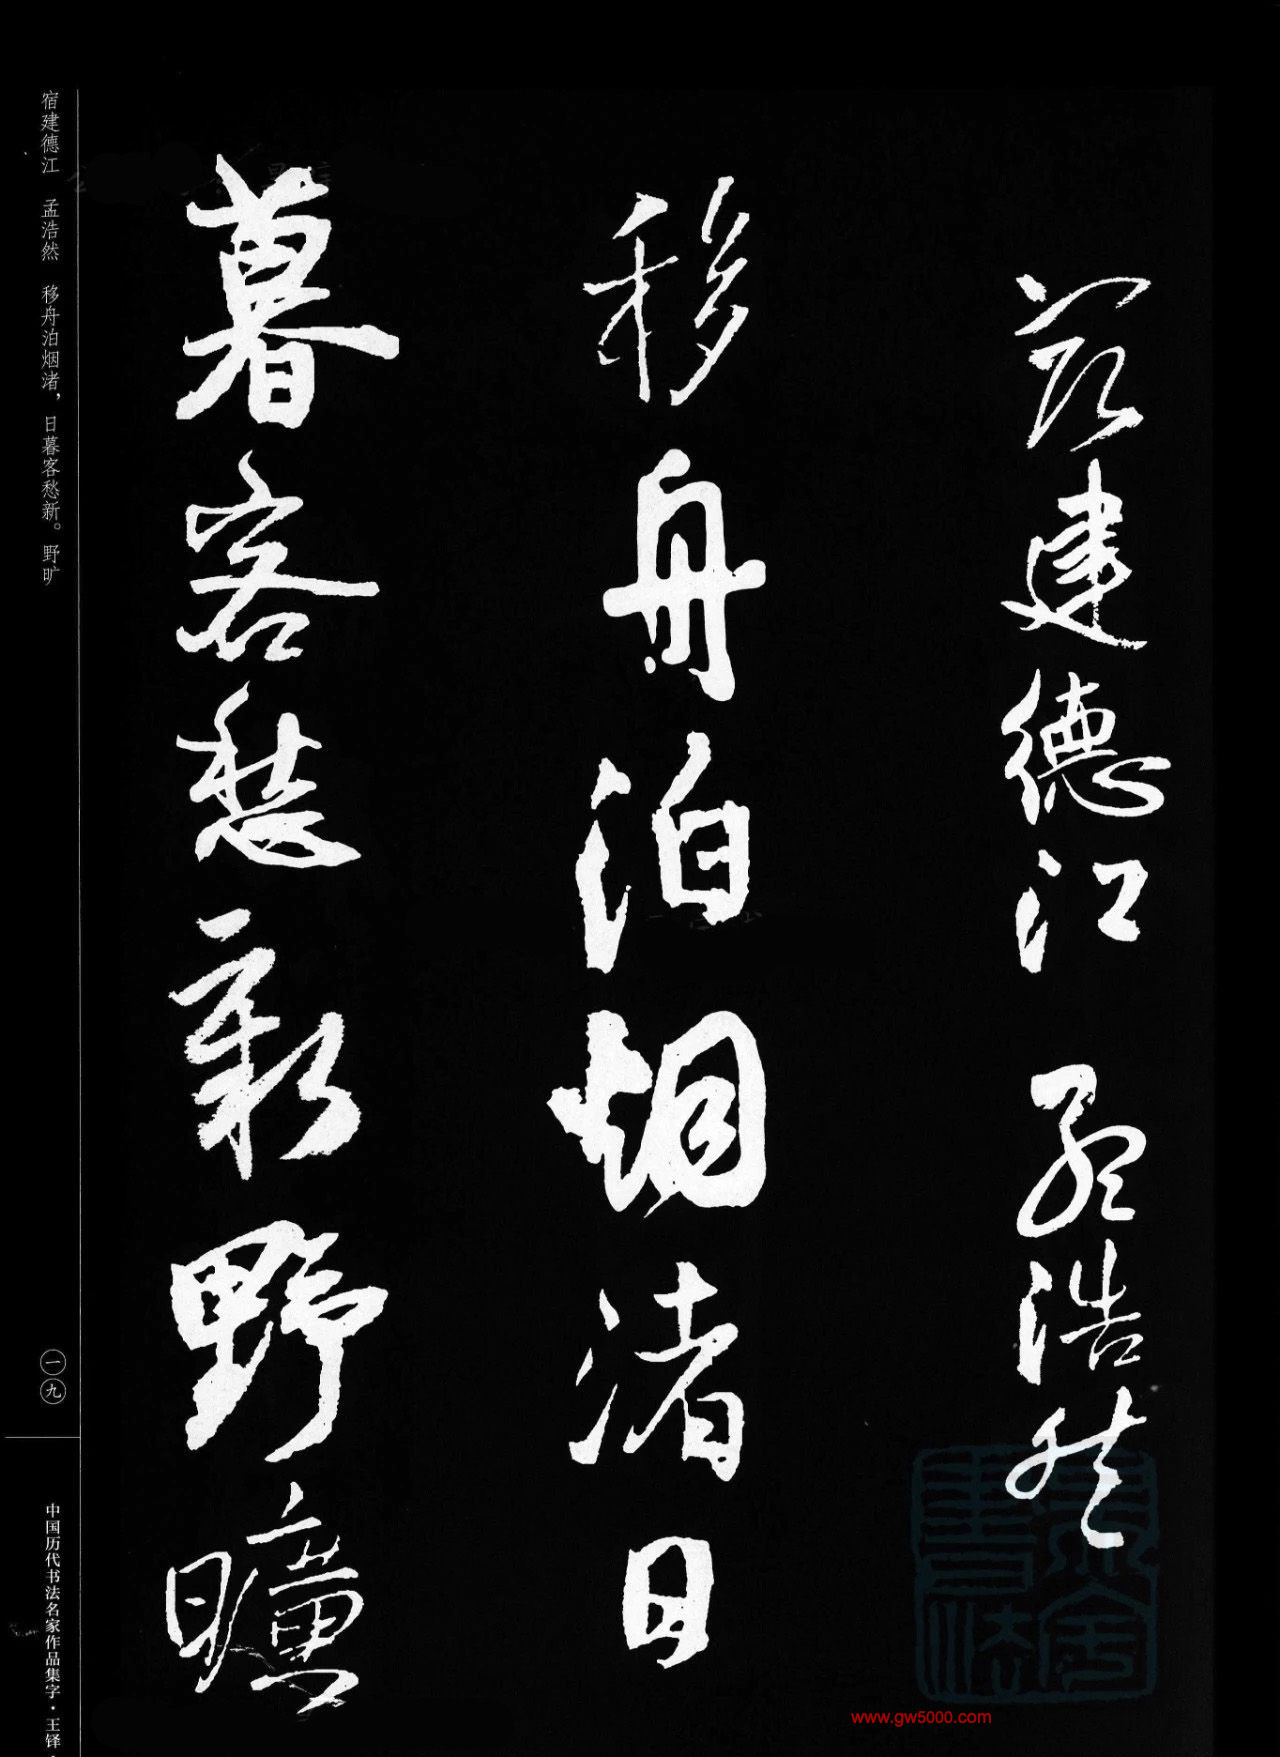 宿建德江 孟浩然
移舟泊烟渚日
暮客愁新野曠
宿建德江 孟浩然 移舟泊烟渚，日暮客愁新。野旷
一九
中国历代书法名家作品集字·王铎·
www.gw5000.com